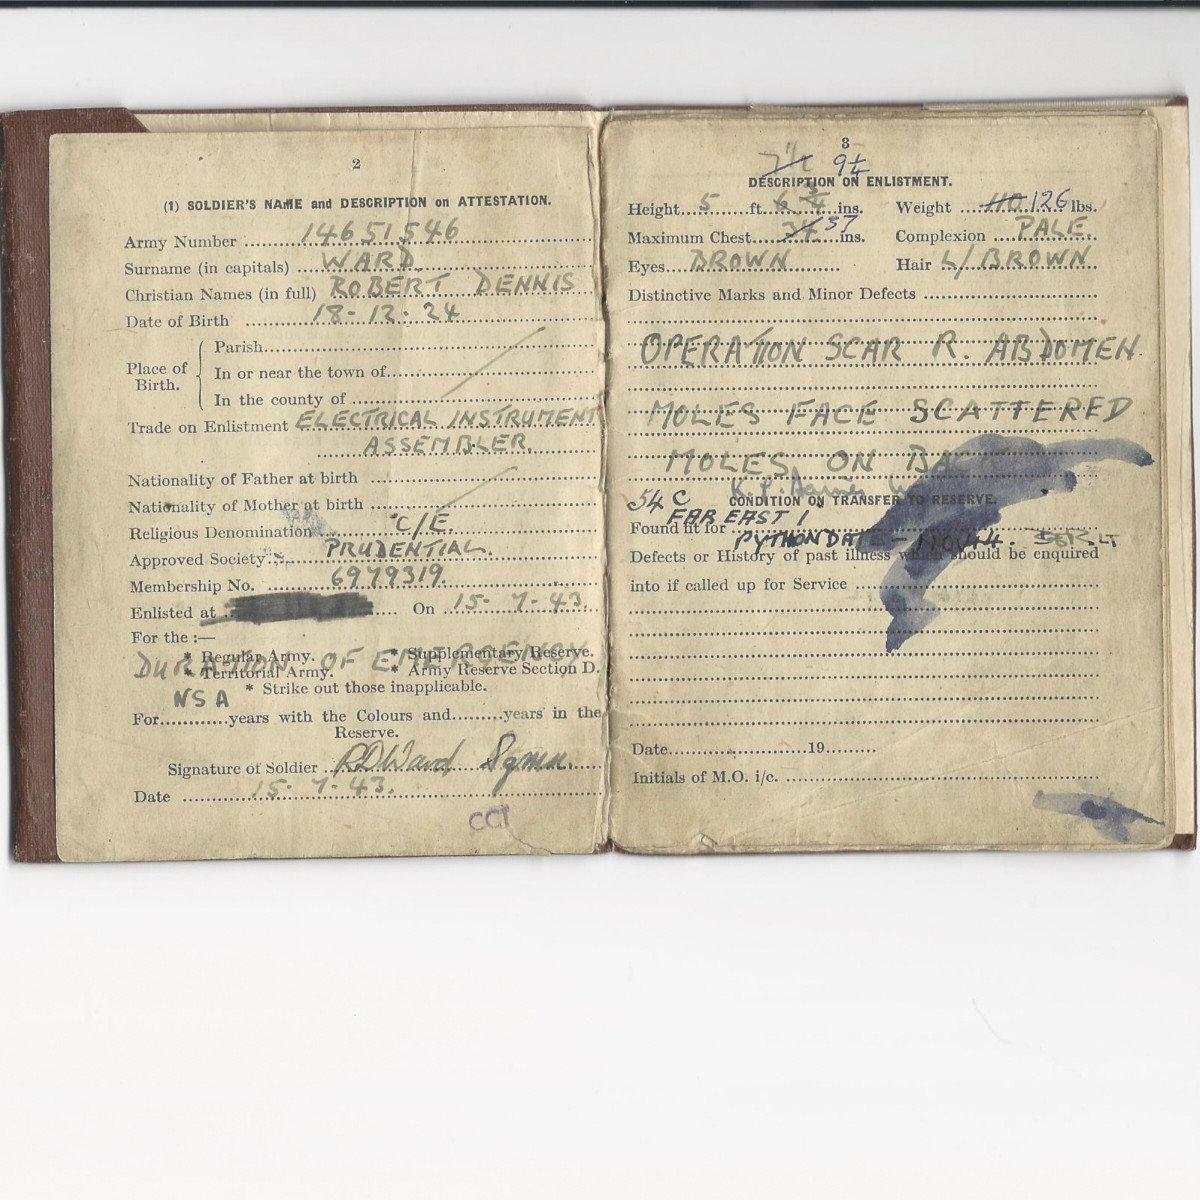 2
(1) SOLDIER'S NAME and DESCRIPTION on ATTESTATION.
Army Number 14651546
Surname (in capitals) WARD
Christian Names (in full) ROBERT DENNIS
Date of Birth 18-12-24
Place of Birth.
Parish
In or near the town of
In the county of
Trade on Enlistment ELECTRICAL INSTRUMENT
ASSEMBLER.
Nationality of Father at birth
Nationality of Mother at birth
Religious Denomination C/E.
Approved Society PRUDENTIAL.
Membership No. 6979319.
Enlisted at On 15-7-43.
For the :—
* Regular Army. * Supplementary Reserve.
DURATION OF EMERGENCY
* Territorial Army. * Army Reserve Section D.
NSA * Strike out those inapplicable.
For years with the Colours and years in the
Reserve.
Signature of Soldier RDWard Sgmn.
Date 15-7-43.
CCI
3
9¼
DESCRIPTION ON ENLISTMENT.
Height 5 ft. 6 ¾ ins. Weight 110 126 lbs.
Maximum Chest 34 37 ins. Complexion PALE.
Eyes BROWN Hair L/BROWN
Distinctive Marks and Minor Defects
OPERATION SCAR R. ABDOMEN.
MOLES FACE SCATTERED
MOLES ON BACK
54 C CONDITION ON TRANSFER TO RESERVE.
FAR EAST 1
Found fit for PYTHON DATE - NOV 44. LT
Defects or History of past illness which should be enquired
into if called up for Service
Date 19
Initials of M.O. i/c.